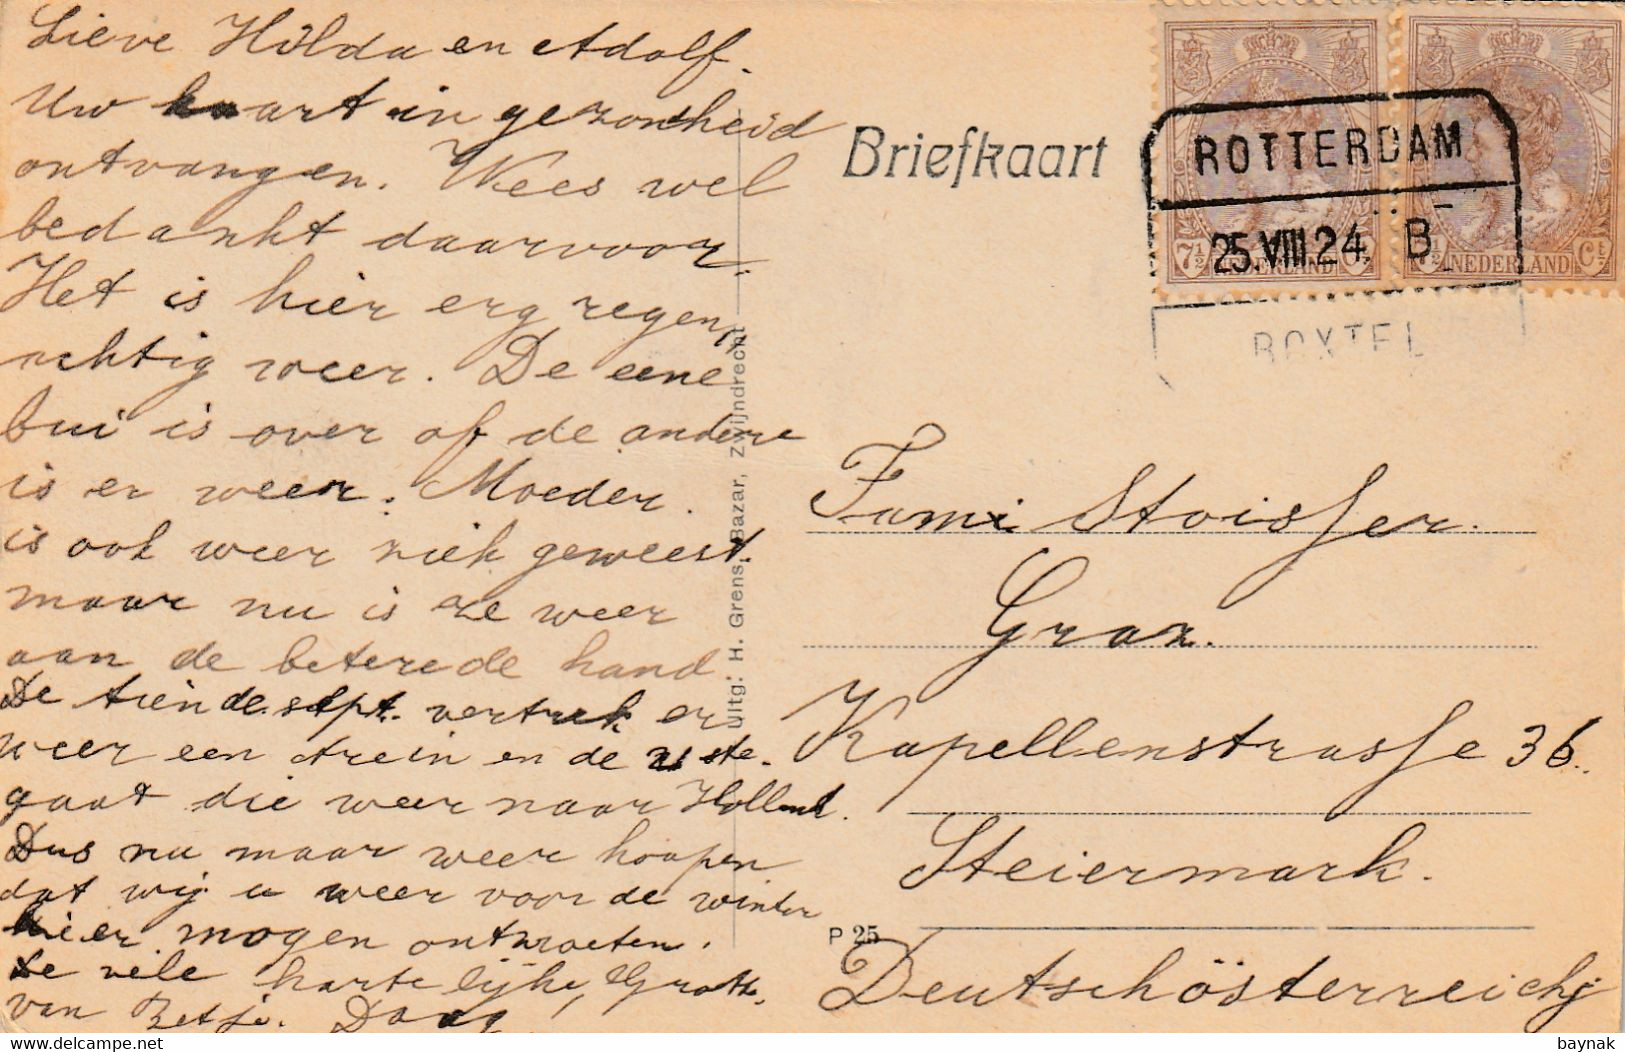 Lieve Hilda en Adolf.
Uw kaart in gezondheid
ontvangen. Wees wel
bedankt daarvoor.
Het is hier erg regen
achtig weer. De eene
bui is over of de andere
is er weer. Moeder
is ook weer ziek geweest.
maar nu is ze weer
aan de beterede hand
De tiende sept. vertrek er
weer een trein en de
gaat die weer naar Holland.
Dus nu maar weer hoopen
dat wij u weer voor de winter
hier mogen ontmoeten.
vele hartelijke
van Betje. Daag!
Uitg: H. Grens, Bazar, Zwijndrecht
Briefkaart
ROTTERDAM
25.VIII.24. B
BOXTEL
7½ NEDERLAND Ct
½ NEDERLAND Ct
Fami Stoisser.
Graz.
Kapellenstrasse 36.
Steiermark.
P 25
Deutschösterreich
baynak